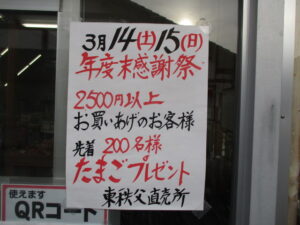 3月14(土)15(日)
年度末感謝祭
2500円以上
お買いあげのお客様
先着 200名様
たまごプレゼント
東秩父直売所
使えます
QRコード